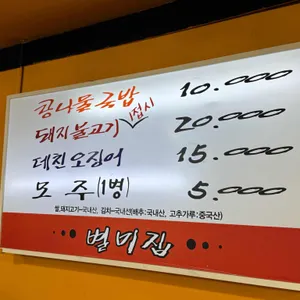 콩나물국밥 10.000
돼지불고기 1접시 20.000
데친오징어 15.000
모주(1병) 5.000
쌀,돼지고기-국내산, 김치-국내산(배추:국내산, 고추가루:중국산)
별미집